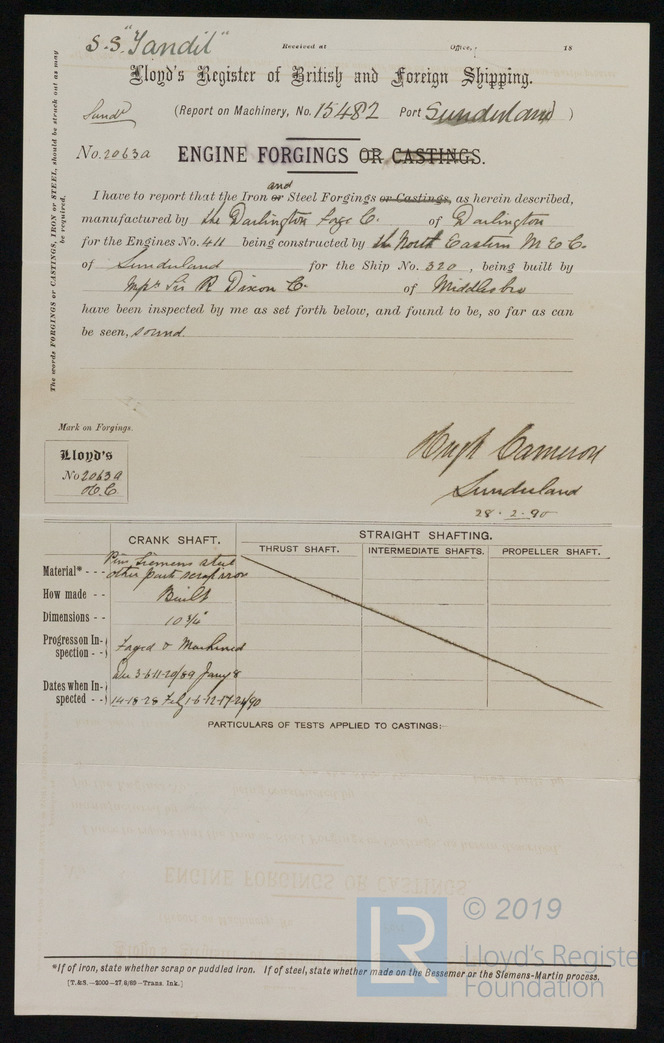 S.S. "Tandil"
Received at Office, 18
Lloyd's Register of British and Foreign Shipping.
(Report on Machinery, No. 15482 Port Sunderland )
Sundd
No. 2063a ENGINE FORGINGS OR CASTINGS.
and
I have to report that the Iron or Steel Forgings or Castings, as herein described,
manufactured by the Darlington Forge Co. of Darlington
for the Engines No. 411 being constructed by the North Eastern M E Co.
of Sunderland for the Ship No. 320 , being built by
Sir R Dixon Co. of Middlesbro
have been inspected by me as set forth below, and found to be, so far as can
be seen, sound.
The words FORGINGS or CASTINGS, IRON or STEEL, should be struck out as may
be required.
Mark on Forgings.
Lloyd's
No 2063a
H.C.
Hugh Cameron
Sunderland
28 . 2 . 90
CRANK SHAFT. STRAIGHT SHAFTING.
THRUST SHAFT. INTERMEDIATE SHAFTS. PROPELLER SHAFT.
Material* - - - Pins Siemens steel
other parts scrap iron
How made - - Built
Dimensions - - 10 3/4"
Progress on In-
spection - - Forged & Machined
Dates when In-
spected - - Dec 3-6-11-20/89 Jany 8
14-18-28 Feby 1-6-12-17-24/90
PARTICULARS OF TESTS APPLIED TO CASTINGS:—
ENGINE FORGINGS OR CASTINGS
LR © 2019
Lloyd's Register
Foundation
*If of iron, state whether scrap or puddled iron. If of steel, state whether made on the Bessemer or the Siemens-Martin process.
[T.&S.—2000—27/6/89—Trans. Ink.]